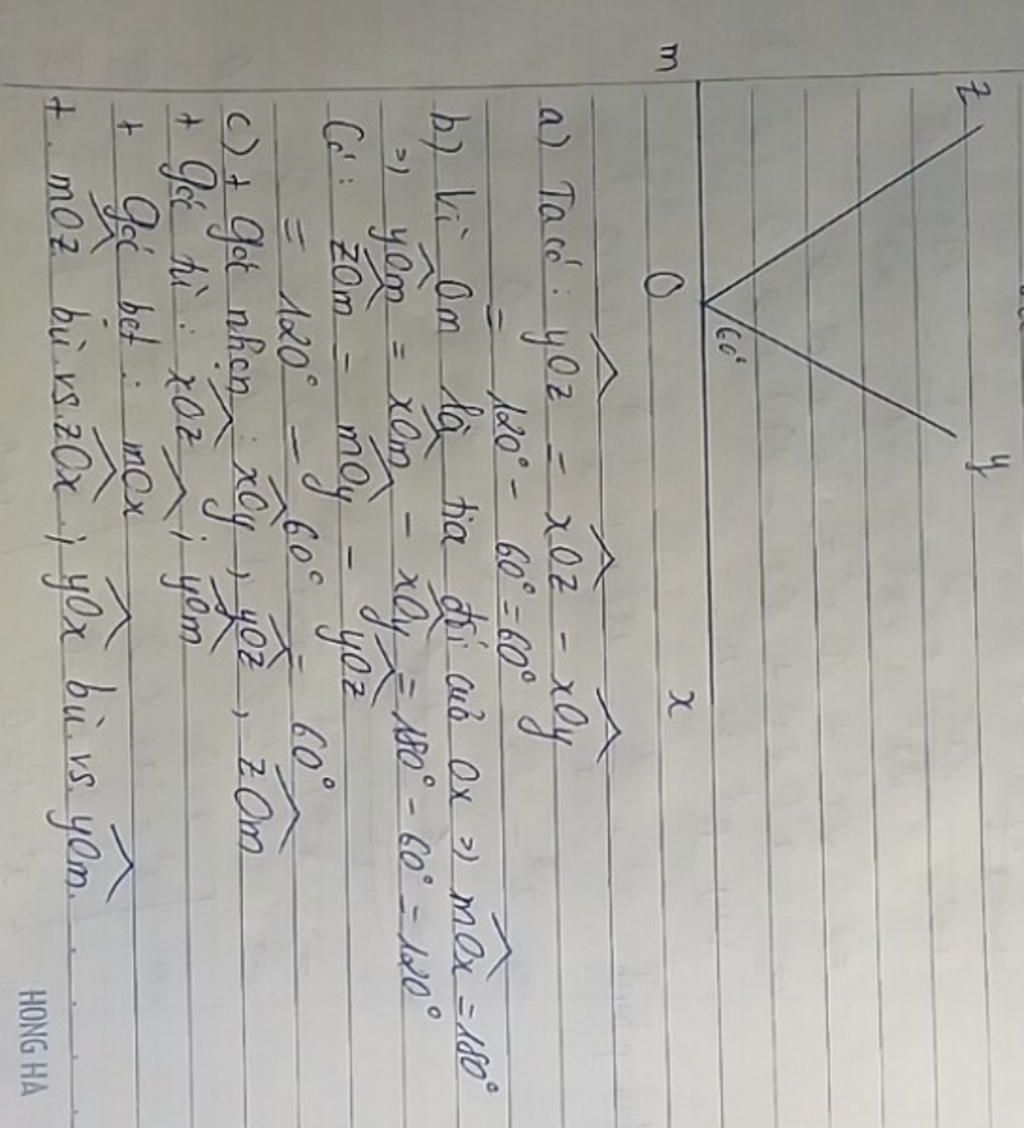 z
y
m
60°
O
x
a) Ta có: yOz = xOz - xOy
= 120° - 60° = 60°
b) Vì Om là tia đối của Ox => mOx = 180°
=> yOm = xOm - xOy = 180° - 60° = 120°
Có: zOm = mOy - yOz
= 120° - 60° = 60°
c) + Góc nhọn: xOy, yOz, zOm
+ Góc tù: xOz; yOm
+ Góc bẹt: mOx
+ mOz bù vs zOx; yOx bù vs yOm.
HONG HA